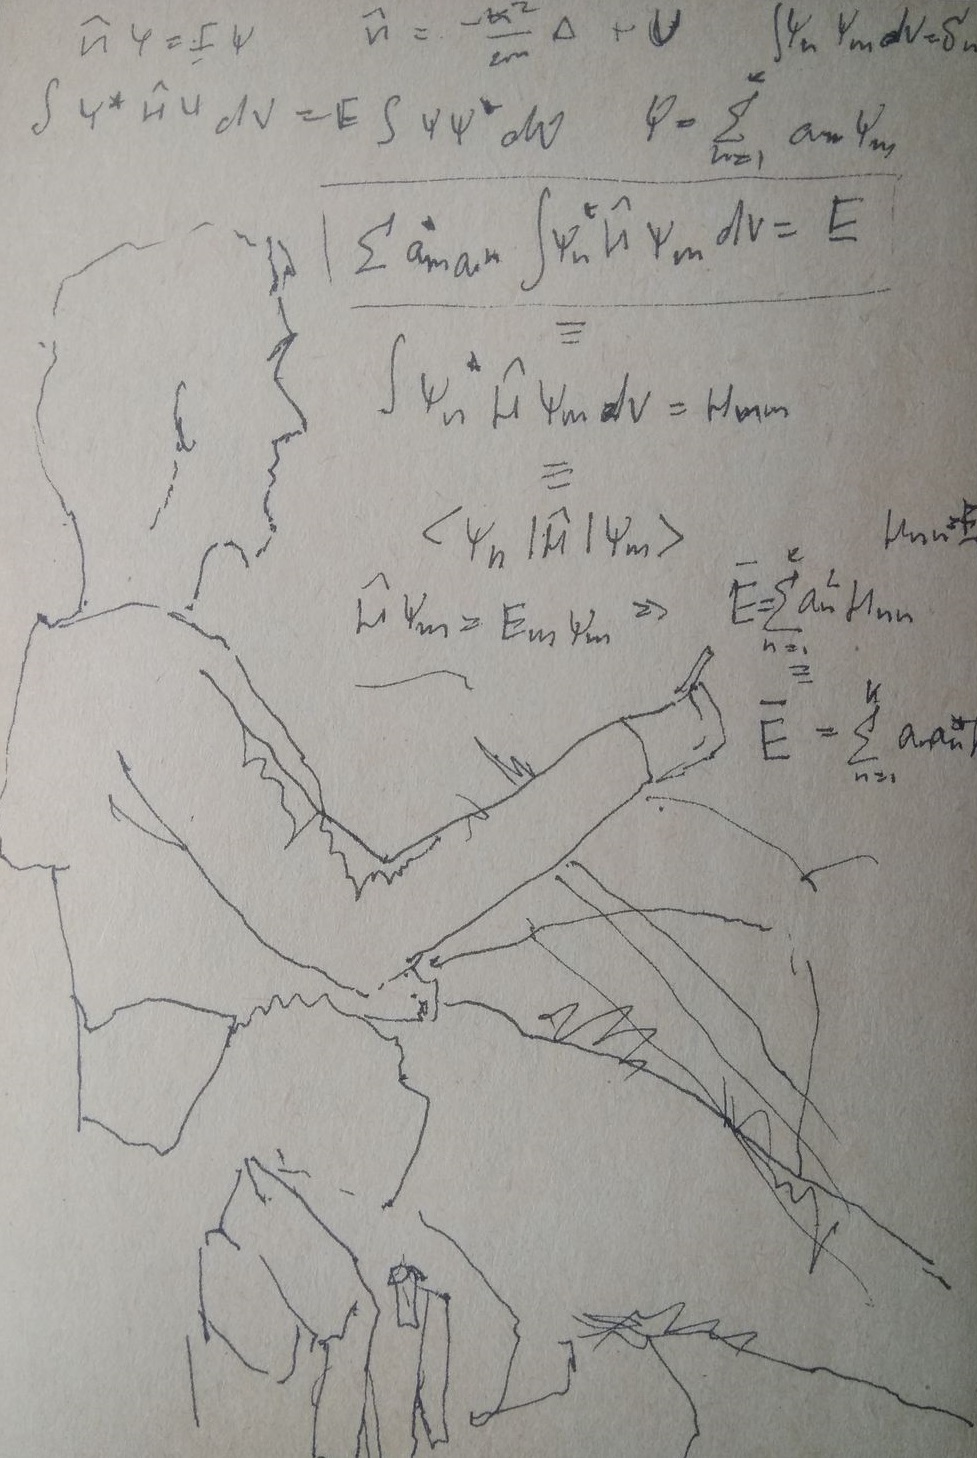 Ĥψ = Eψ   Ĥ = -ħ²/2m Δ + U   ∫ψn ψm dV = δn
∫ψ* Ĥψ dV = E ∫ψψ* dV   ψ = Σ_{n=1}^{k} am ψm
Σ a*m an ∫ψn* Ĥ ψm dV = E
≡
∫ψn* Ĥ ψm dV = Hnm
≡
<ψn |Ĥ| ψm>   Hnn = E
Ĥψm = Em ψm ⇒ Ē = Σ_{n=1}^{k} an² Hnn
≡
Ē = Σ_{n=1}^{k} an an*